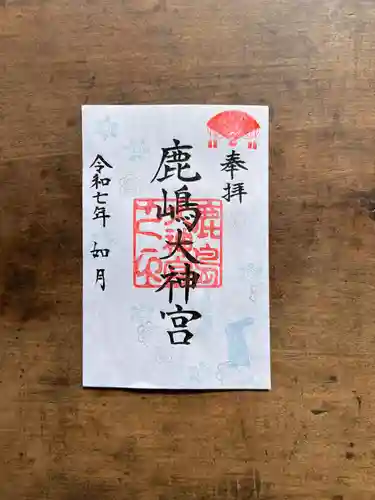 奉拝
鹿嶋大神宮
令和七年 如月